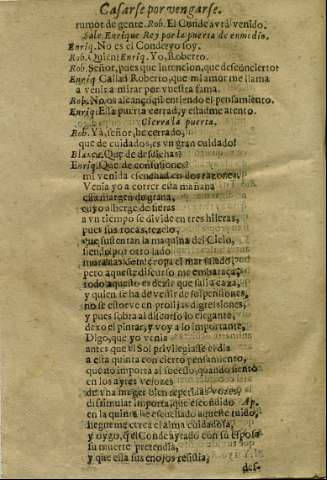 Casarse por vengarse.
rumor de gente. Rob. El Conde avrà venido.
Sale Enrique Rey por la puerta de enmedio.
Enriq. No es el Conde yo soy.
Rob. Quien? Enriq. Yo, Roberto.
Rob. Señor, pues que intencion, que desconcierto?
Enriq. Callad Roberto, que mi amor me llama
a venir a mirar por vuestra fama.
Rob. No os alcanço, ni entiendo el pensamiento.
Enriq. Essa puerta cerrad, y estadme atento.
Cierra la puerta.
Rob. Ya, señor, he cerrado,
que de cuidados, es vn gran cuidado!
Blanca. Que de desdichas?
Enriq. Que de confusiones?
mi venida escuchad en dos razones.
Venia yo a correr esta mañana
essa margen de grana,
cuyo alberge de fieras
a vn tiempo se divide en tres hileras,
pues sus rocas, recelo,
que sustentan la maquina del Cielo,
siendo por otro lado
pero aqueste discurso me embaraça,
todo aquesto es dezir que salì a caza,
y quien se ha de vestir de suspensiones,
no se estorve en prolijas digressiones,
y pues sobra al discurso lo elegante,
dexo el pintar, y voy a lo importante,
Digo, que yo venia
antes que el Sol privilegiasse el dia
a esta quinta con cierto pensamiento,
que no importa al sucesso, quando siento
en los ayres velozes
de vna muger bien repetidas vozes,
dissimular importa, que escondido Ap.
en la quinta he escuchado aqueste ruido,
llegueme cerca el alma cuidadosa,
y oygo, q̃ el Conde ayrado con su esposa
su muerte pretendia,
y que ella sus enojos resistia,
des-